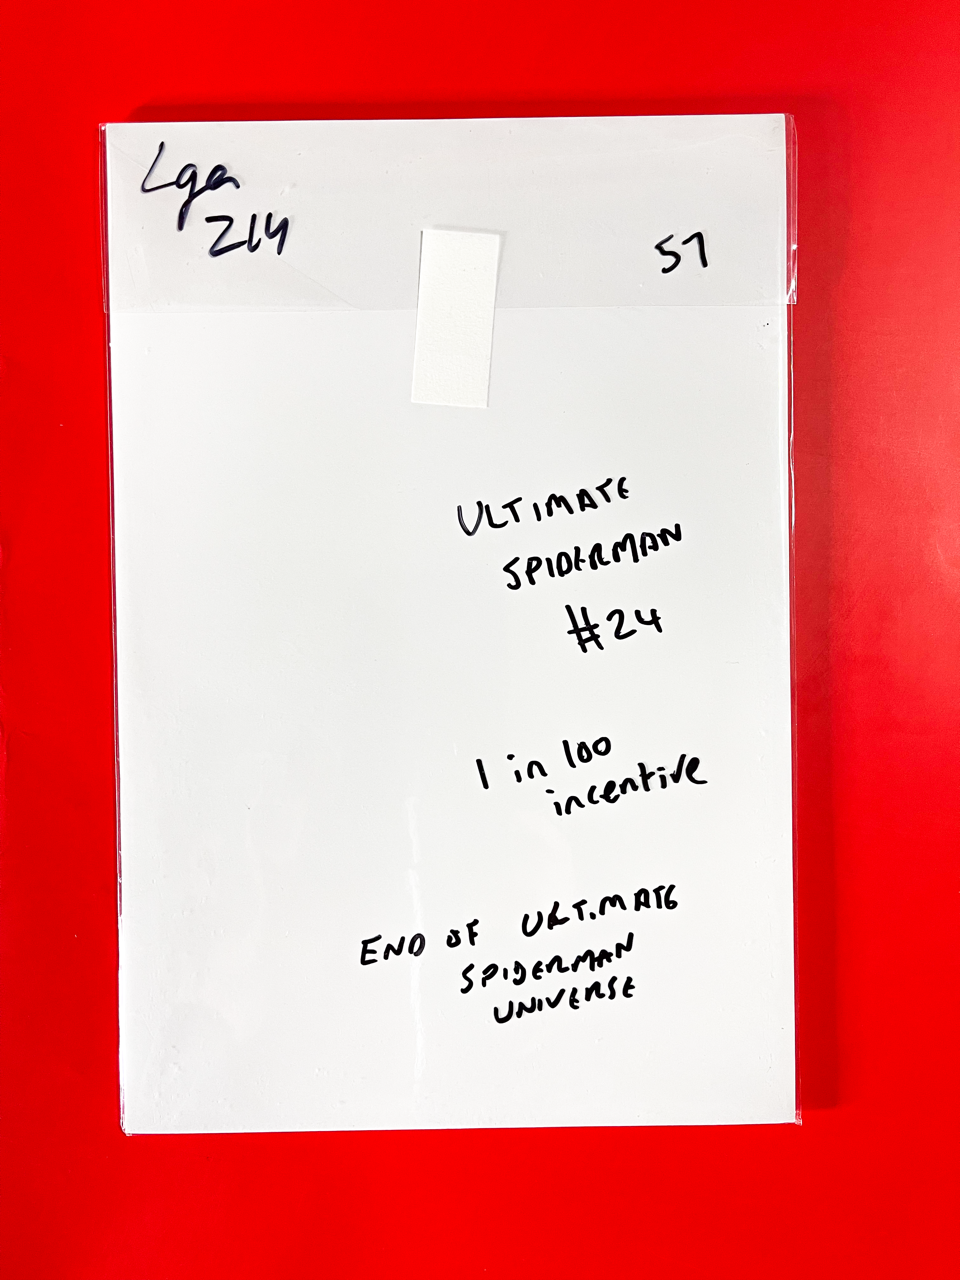 Lga
214
57
ULTIMATE
SPIDERMAN
#24
1 in 100
incentive
END OF ULTIMATE
SPIDERMAN
UNIVERSE